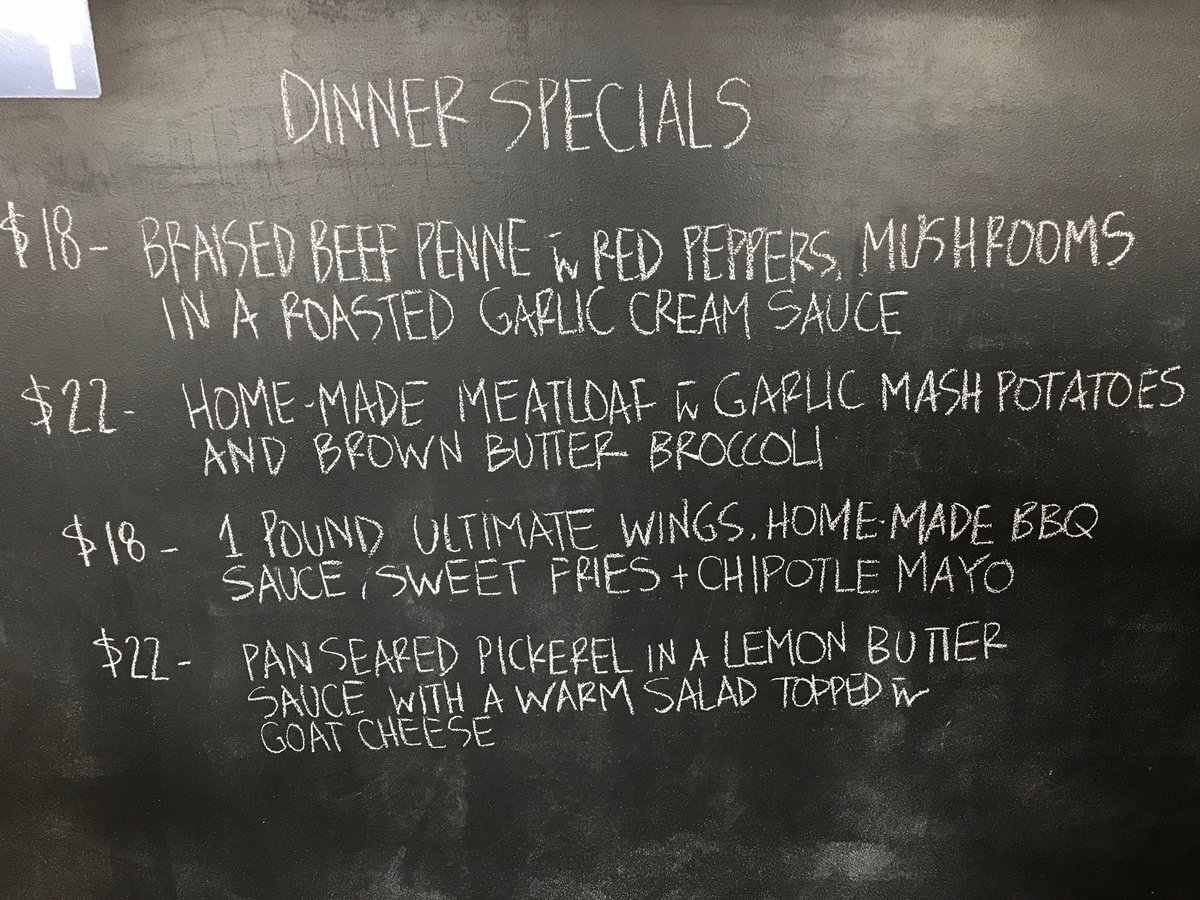 DINNER SPECIALS
$18- BRAISED BEEF PENNE w̄ RED PEPPERS, MUSHROOMS
IN A ROASTED GARLIC CREAM SAUCE
$22- HOME-MADE MEATLOAF w̄ GARLIC MASH POTATOES
AND BROWN BUTTER BROCCOLI
$18- 1 POUND ULTIMATE WINGS, HOME-MADE BBQ
SAUCE, SWEET FRIES + CHIPOTLE MAYO
$22- PAN SEARED PICKEREL IN A LEMON BUTTER
SAUCE WITH A WARM SALAD TOPPED w̄
GOAT CHEESE